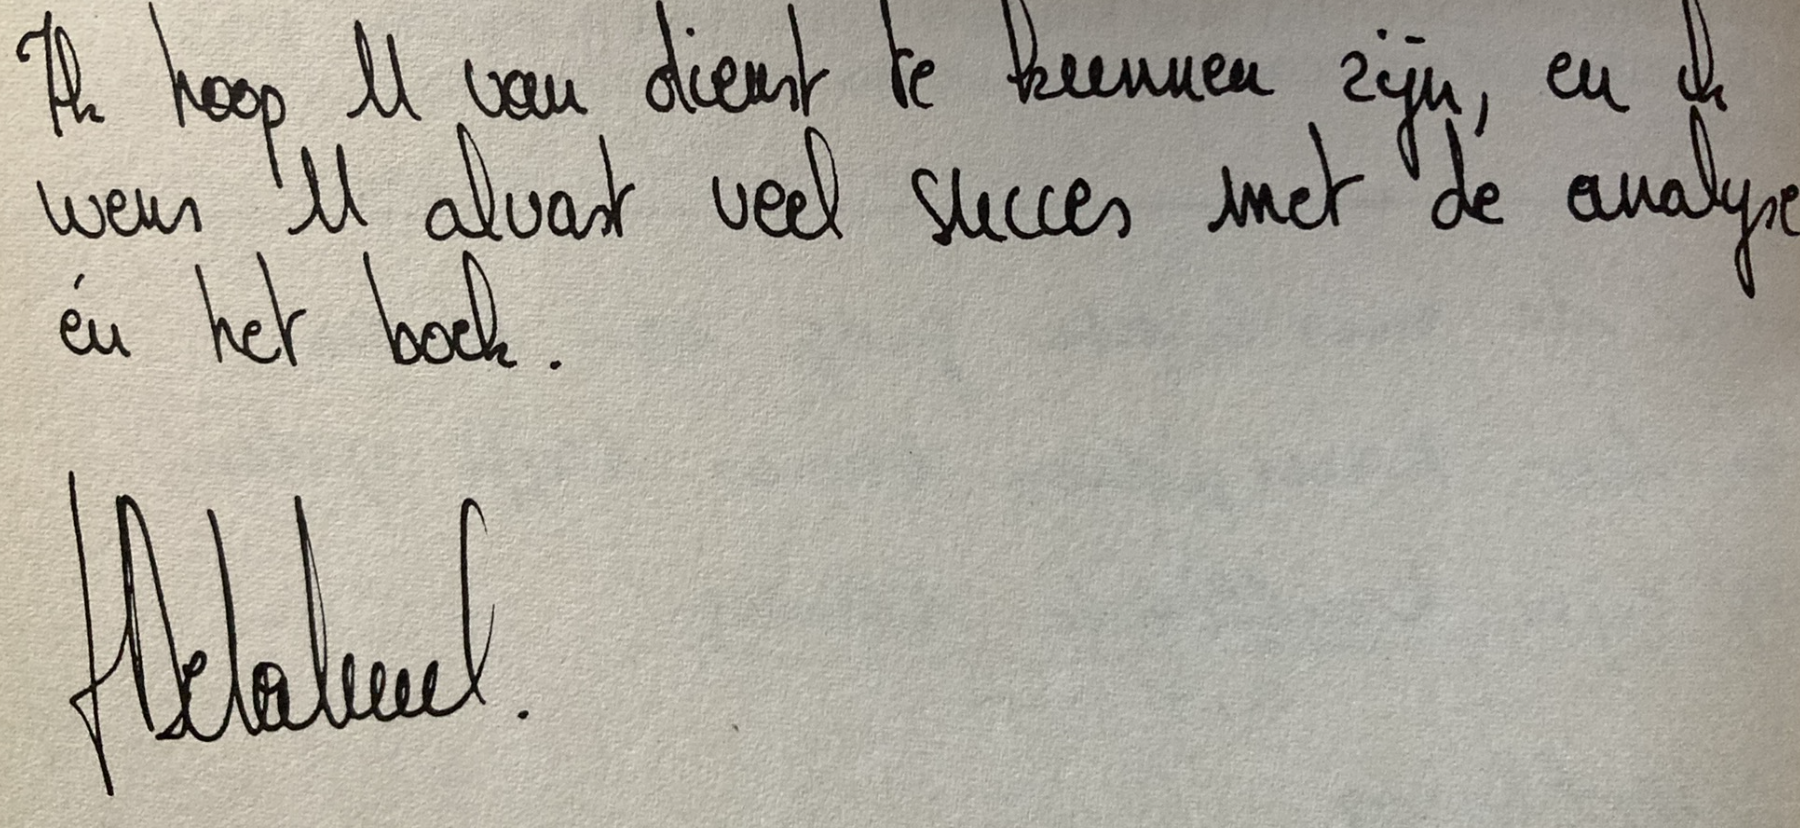 Ik hoop U van dienst te kunnen zijn, en ik
wens U alvast veel succes met de analyse
én het boek.